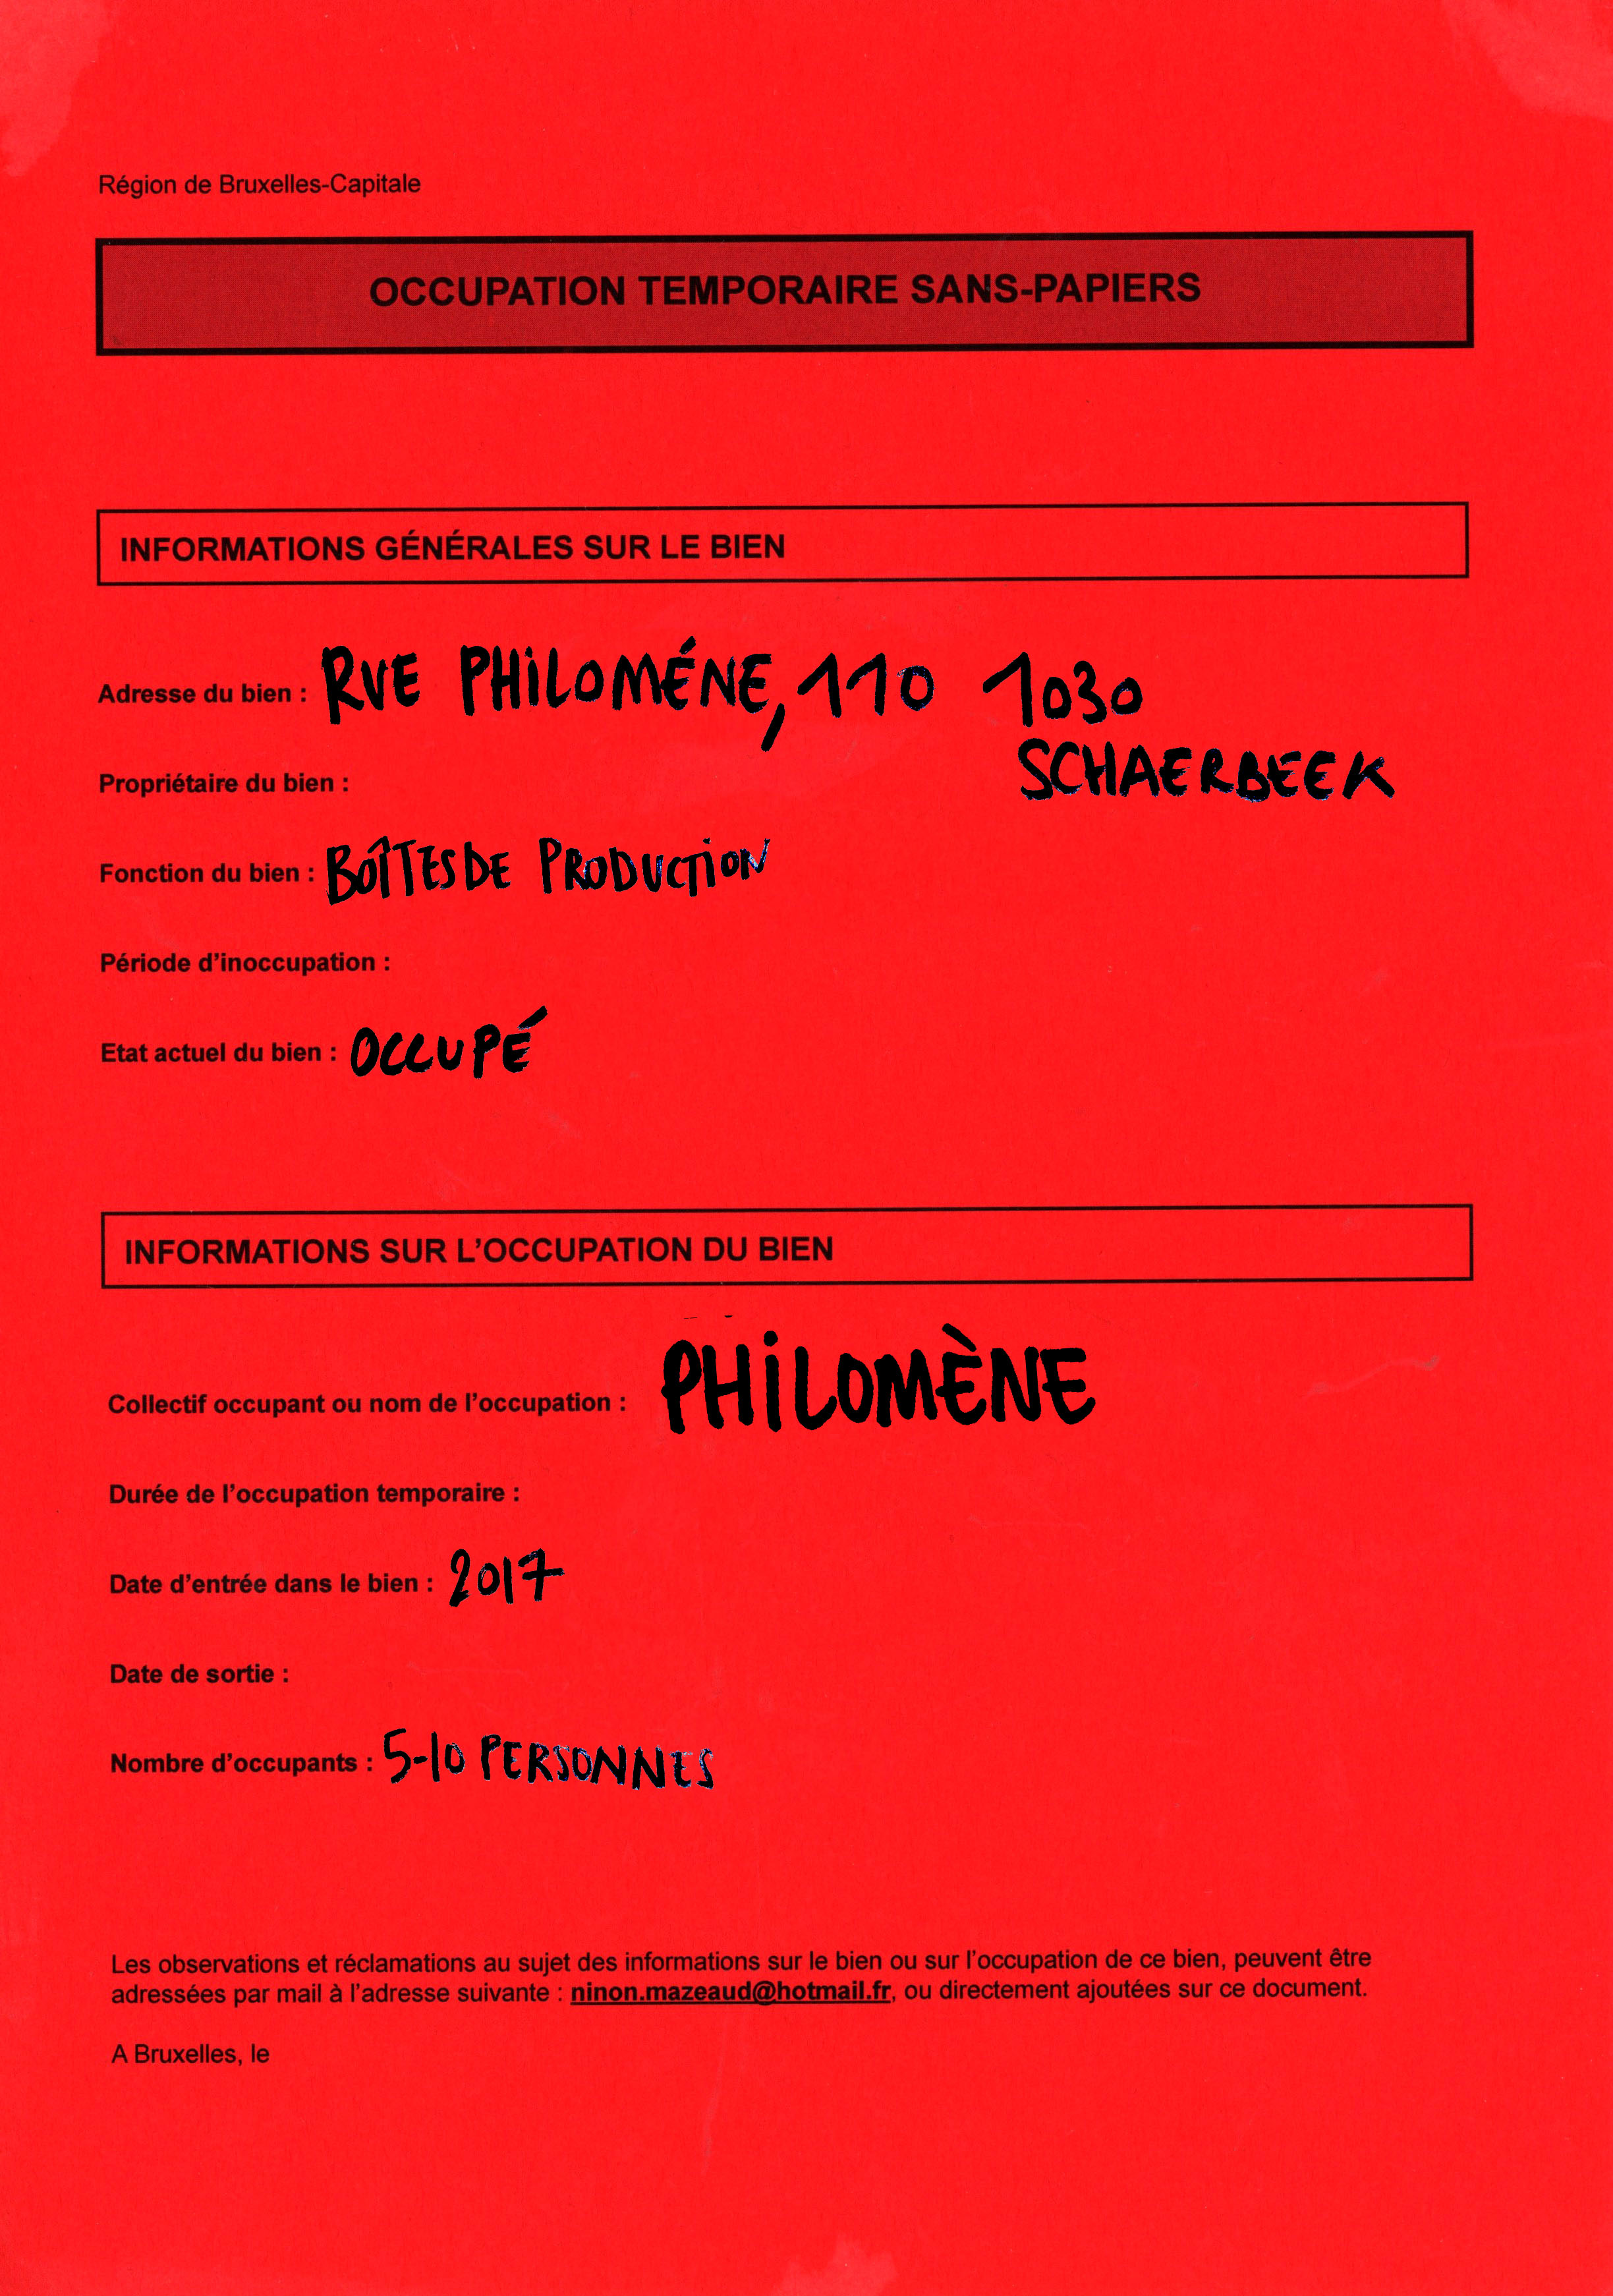 Région de Bruxelles-Capitale
OCCUPATION TEMPORAIRE SANS-PAPIERS
INFORMATIONS GÉNÉRALES SUR LE BIEN
Adresse du bien : RUE PHILOMÉNE, 110 1030
SCHAERBEEK
Propriétaire du bien :
Fonction du bien : BOÎTES DE PRODUCTION
Période d'inoccupation :
Etat actuel du bien : OCCUPÉ
INFORMATIONS SUR L'OCCUPATION DU BIEN
Collectif occupant ou nom de l'occupation : PHILOMÈNE
Durée de l'occupation temporaire :
Date d'entrée dans le bien : 2017
Date de sortie :
Nombre d'occupants : 5-10 PERSONNES
Les observations et réclamations au sujet des informations sur le bien ou sur l'occupation de ce bien, peuvent être
adressées par mail à l'adresse suivante : ninon.mazeaud@hotmail.fr, ou directement ajoutées sur ce document.
A Bruxelles, le